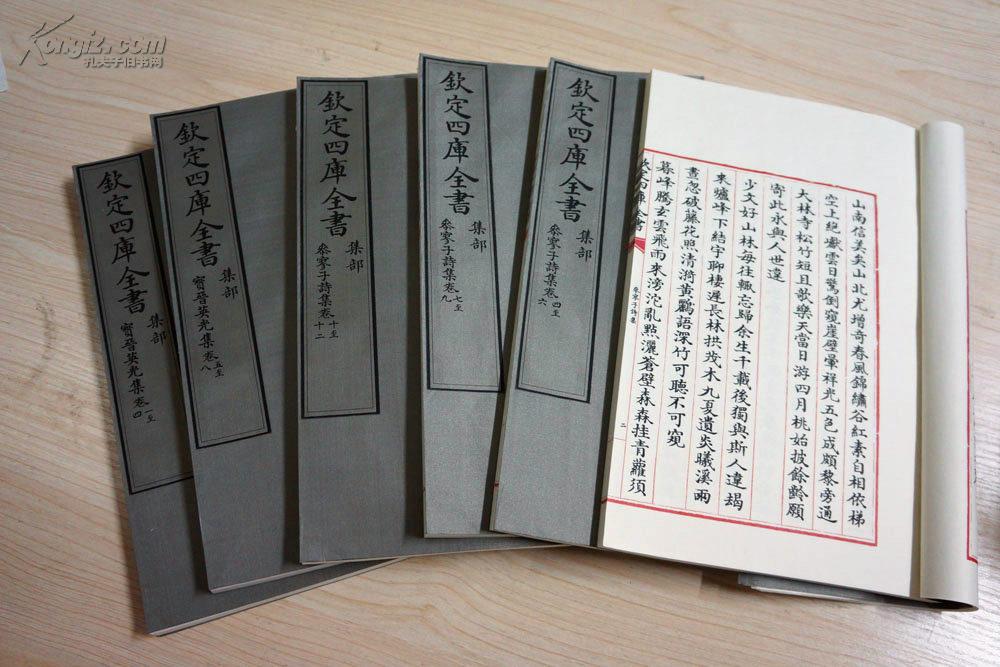 Kongfz.com
孔夫子旧书网
欽定四庫全書
集部
寶晉英光集卷一至四
欽定四庫全書
集部
寶晉英光集卷五至八
欽定四庫全書
集部
參寥子詩集卷十至十二
欽定四庫全書
集部
參寥子詩集卷七至九
欽定四庫全書
集部
參寥子詩集卷四至六
山南信美矣山北尤增奇春風錦繡谷紅素自相依梯
空上絶巘雲日驚倒窺崖壁暈祥光五色成頗黎旁通
大林寺松竹短且欹樂天當日游四月桃始披餘齡願
寄此永與人世違
少文好山林每往輙忘歸余生千載後獨與斯人違朅
來爐峰下結宇聊棲遲長林拱茂木九夏遺炎曦溪雨
晝忽破藤花照清漪黄鸝語深竹可聽不可窺
暮峰騰玄雲飛雨來滂沱亂點灑蒼壁森森挂青蘿須
欽定四庫全書
參寥子詩集
二